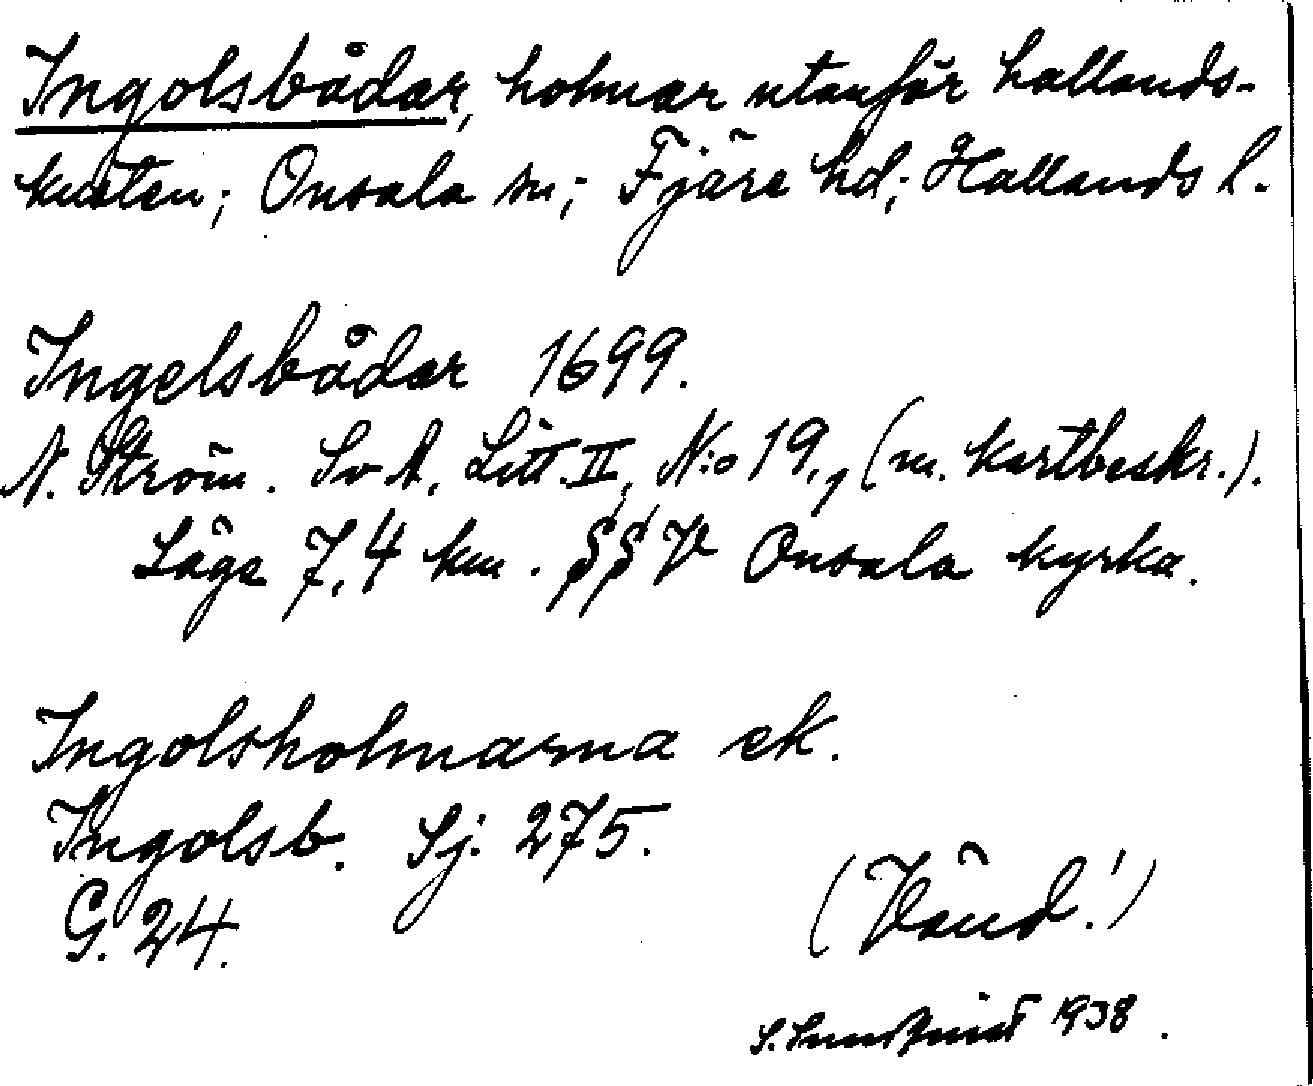 Ingolsbådar, holmar utanför hallands-
kusten; Onsala sn; Fjäre hd; Hallands l.
Ingelsbådar 1699.
N. Ström. Sv A. Litt. II, N:o 19., (m. kartbeskr.).
Läge 7,4 km. SSV Onsala kyrka.
Ingolsholmarna ek.
Ingolsb. Sj. 275.
G. 24.
(Vänd!)
S. Sundqvist 1938.